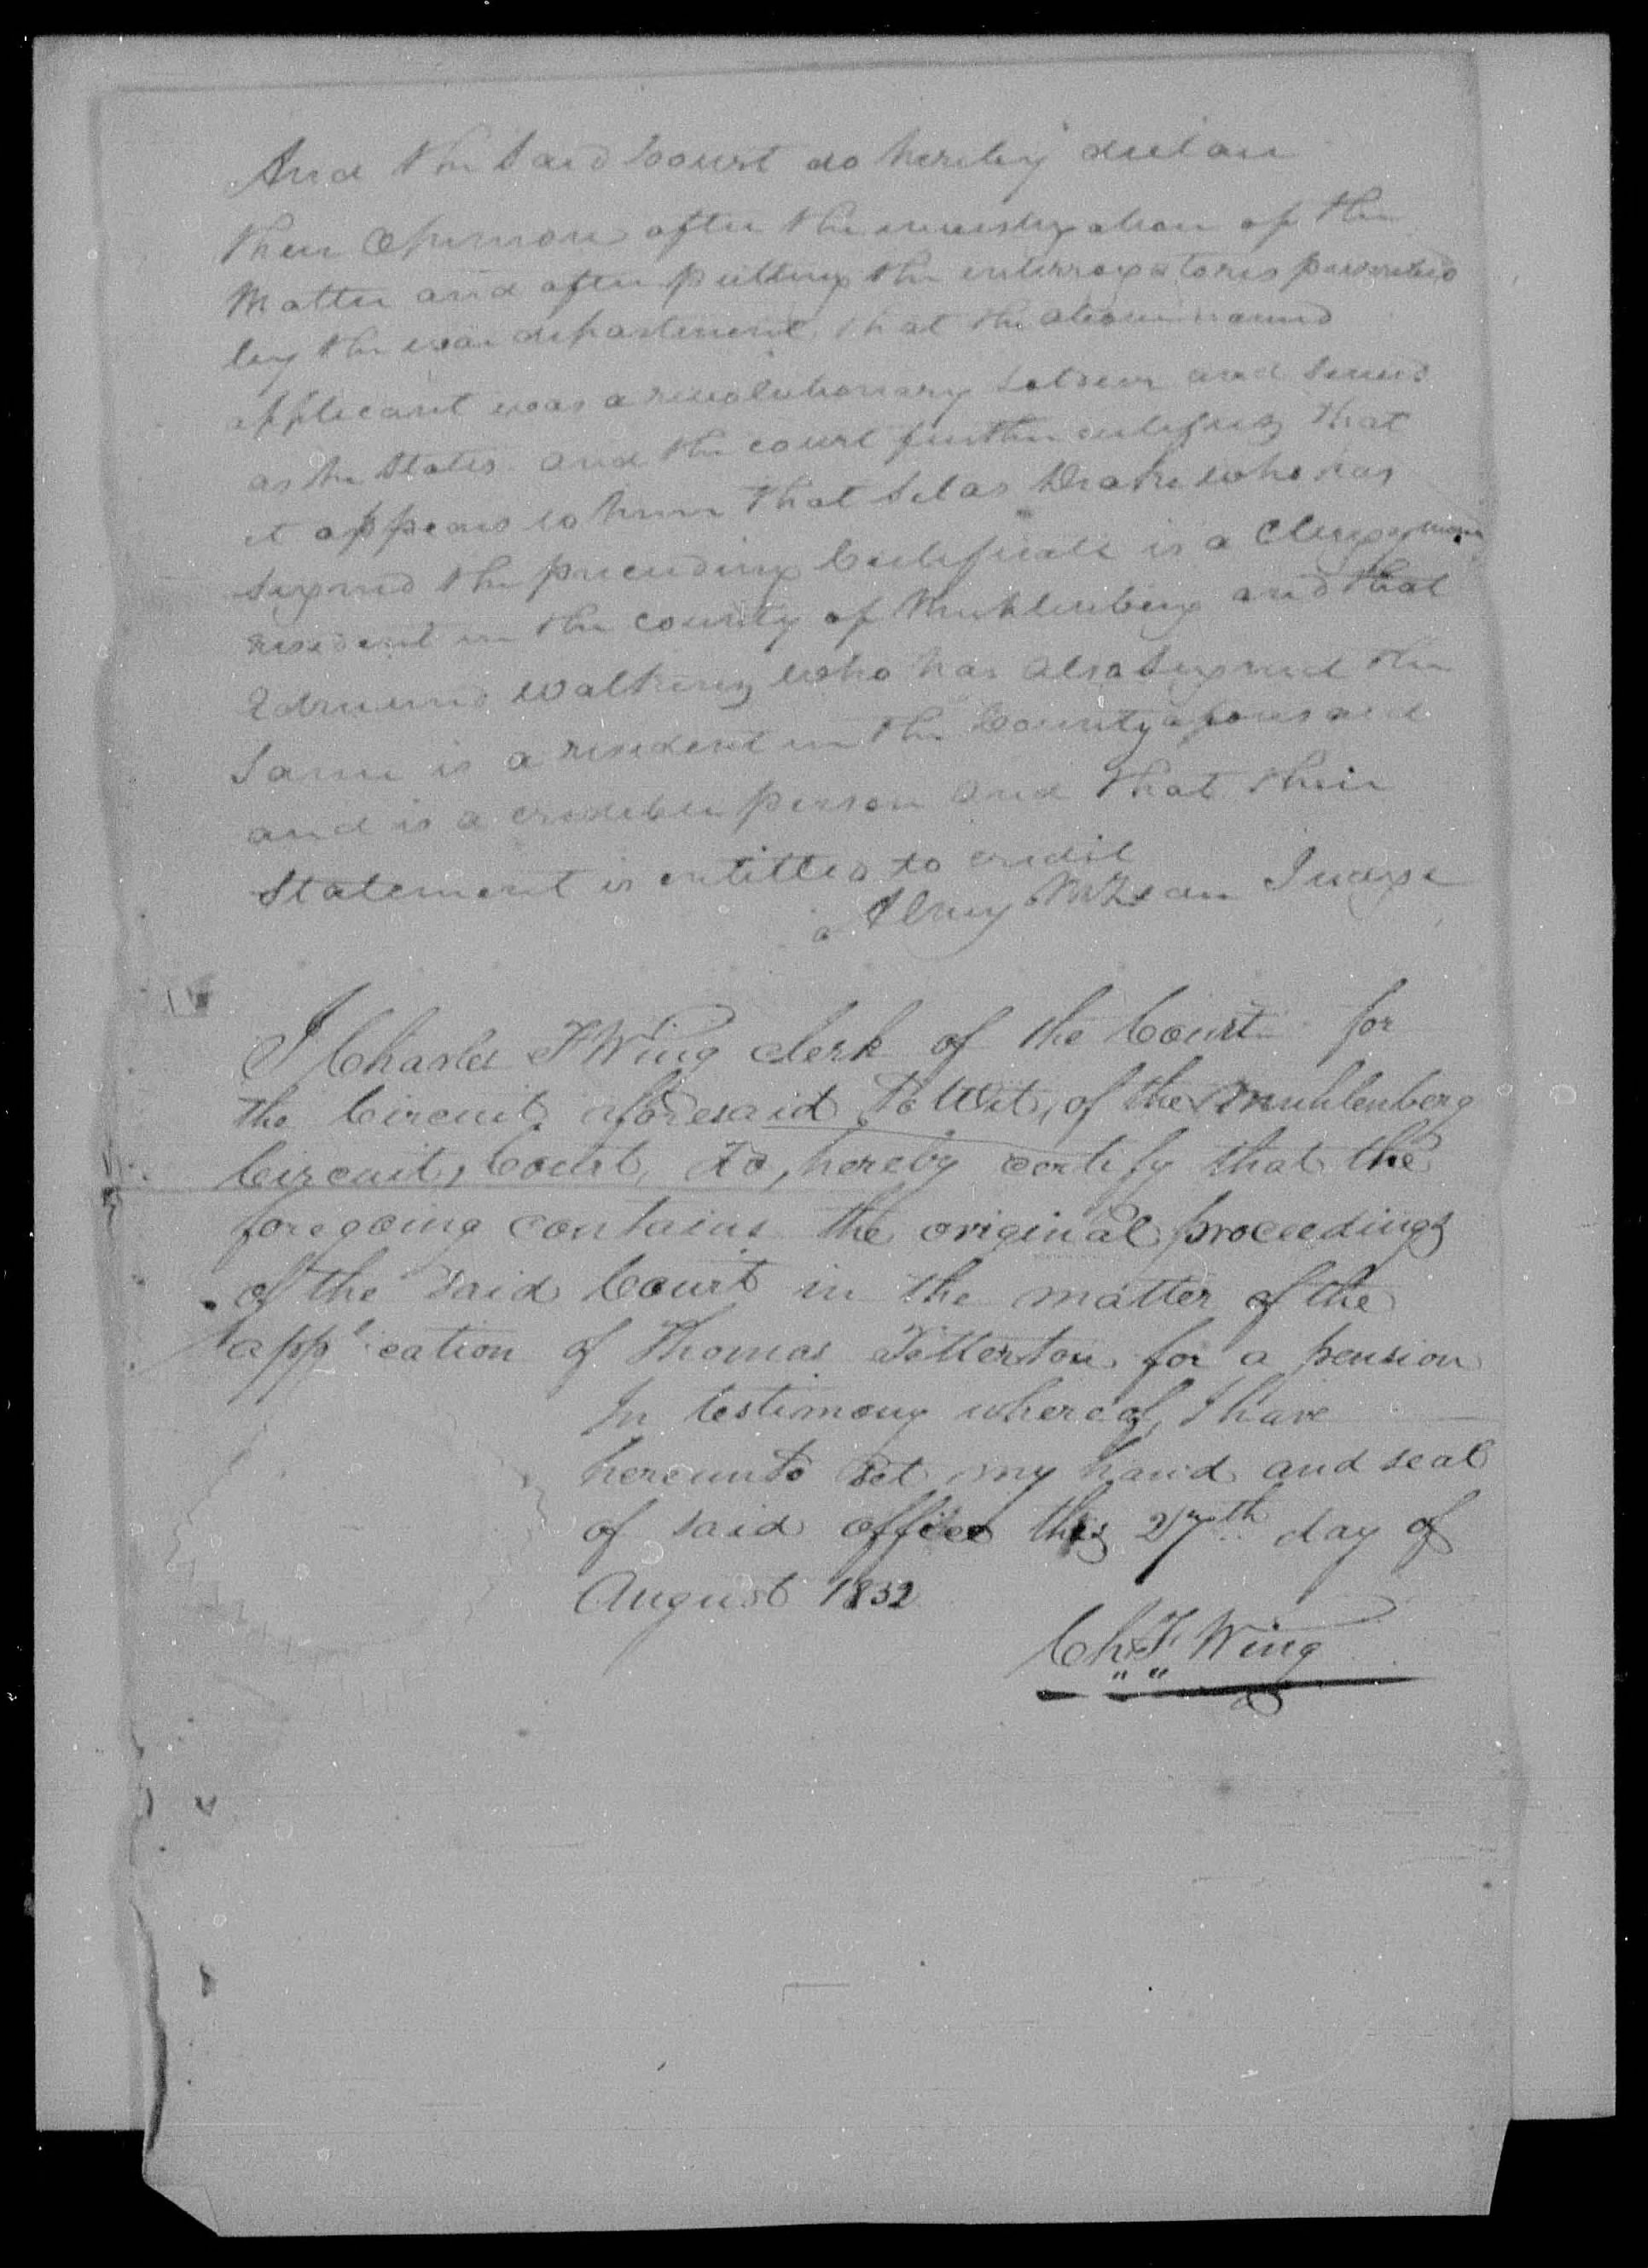 And the Said Court do hereby declare
their Opinion after the investigation of the
Matter and after putting the interrogatories prescribed
by the war department, that the above named
applicant was a revolutionary Soldier and Served
as he States. and the court further certifies that
it appears to him that Silas Drake who has
signed the preceeding Certificate is a Clergyman
resident in the county of Muhlenberg and that
Edmund Watkins who has also signed the
Same is a resident in the County aforesaid
and is a credible person and that their
Statement is entitled to credit
Alney McLean Judge
I Charles F Wing clerk of the Court for
the Circuit aforesaid To Wit, of the Muhlenberg
Circuit, Court, do, hereby certify that the
foregoing contains the original proceedings
of the said Court in the matter of the
application of Thomas for a pension
In testimony whereof, I have
hereunto set my hand and seal
of said office this 27th day of
August 1832
Ch F Wing